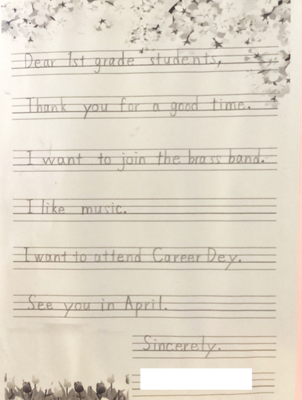 Dear 1st grade students,
Thank you for a good time.
I want to join the brass band.
I like music.
I want to attend Career Dey.
See you in April.
Sincerely.